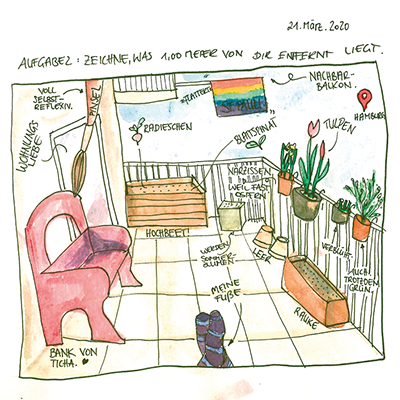 21. MÄRZ. 2020
AUFGABE 2: ZEICHNE, WAS 1,00 METER VON DIR ENTFERNT LIEGT.
VOLL
SELBST-
REFLEXIV.
PINSEL
*FLATTER*
ST. PAULI
NACHBAR-
BALKON.
WOHNUNGS
LIEBE
RADIESCHEN
BLATTSPINAT
TULPEN
HAMBURG
NARZISSEN,
WEIL FAST
OSTERN
HOCHBEET!
WERDEN
SOMMER-
BLUMEN
LEER
VERBLÜHT.
AUCH.
TROTZDEM
GRÜN.
MEINE
FÜẞE
RAUKE
BANK VON
TICHA.